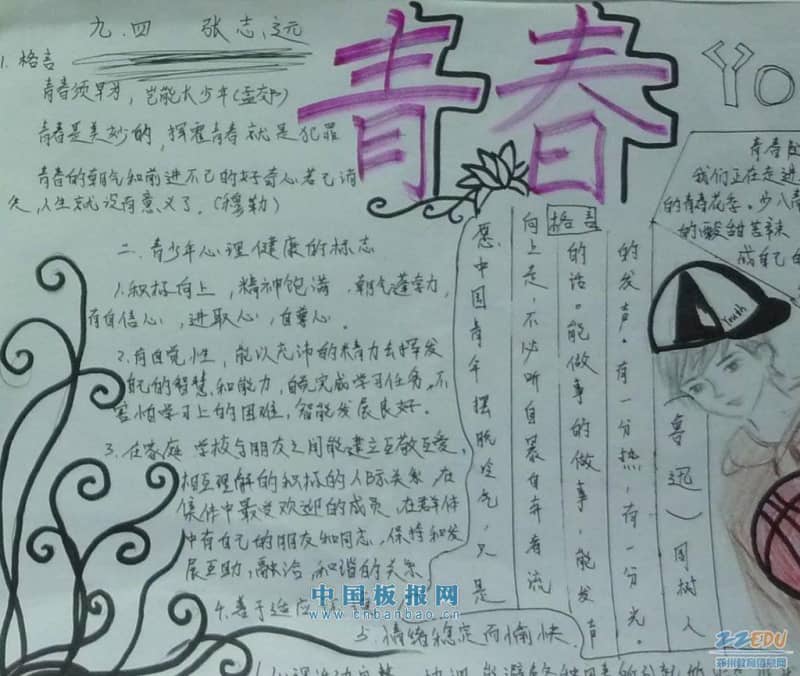 九.四 张志远
青春
YO
1. 格言
青春须早为,岂能长少年(孟郊)
青春是美妙的,挥霍青春就是犯罪
青春的朝气和前进不已的好奇心若已消
失,人生就没有意义了.(穆勒)
二. 青少年心理健康的标志
1.积极向上,精神饱满.朝气蓬勃,
有自信心,进取心,自尊心.
2.有自觉性,能以充沛的精力去挥发
自己的智慧和能力,完成学习任务.不
害怕学习上的困难,智能发展良好.
3.在家庭 学校与朋友之间能建立互敬互爱,
相互理解的积极的人际关系,在
集体中最受欢迎的成员.在群体
中有自己的朋友和同志,保持和发
展互助,融洽 和谐的关系
4.善于适应
5.情绪稳定而愉快.
格言
愿中国青年摆脱冷气,只是
向上走,不必听自暴自弃者流
的话。能做事的做事,能发声
的发声。有一分热,有一分光。
鲁迅)周树人
我们正在走进
的青春花季。少
的酸甜苦辣
成自己
Youth
中国板报网
www.cnbanbao.cn
ZZEDU
郑州教育信息网